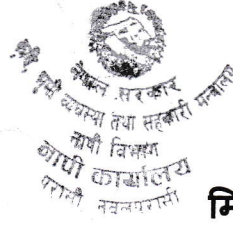 नेपाल सरकार
भूमी व्यवस्था तथा सहकारी मन्त्रालय
नापी विभाग
नापी कार्यालय
परासी नवलपरासी
मि